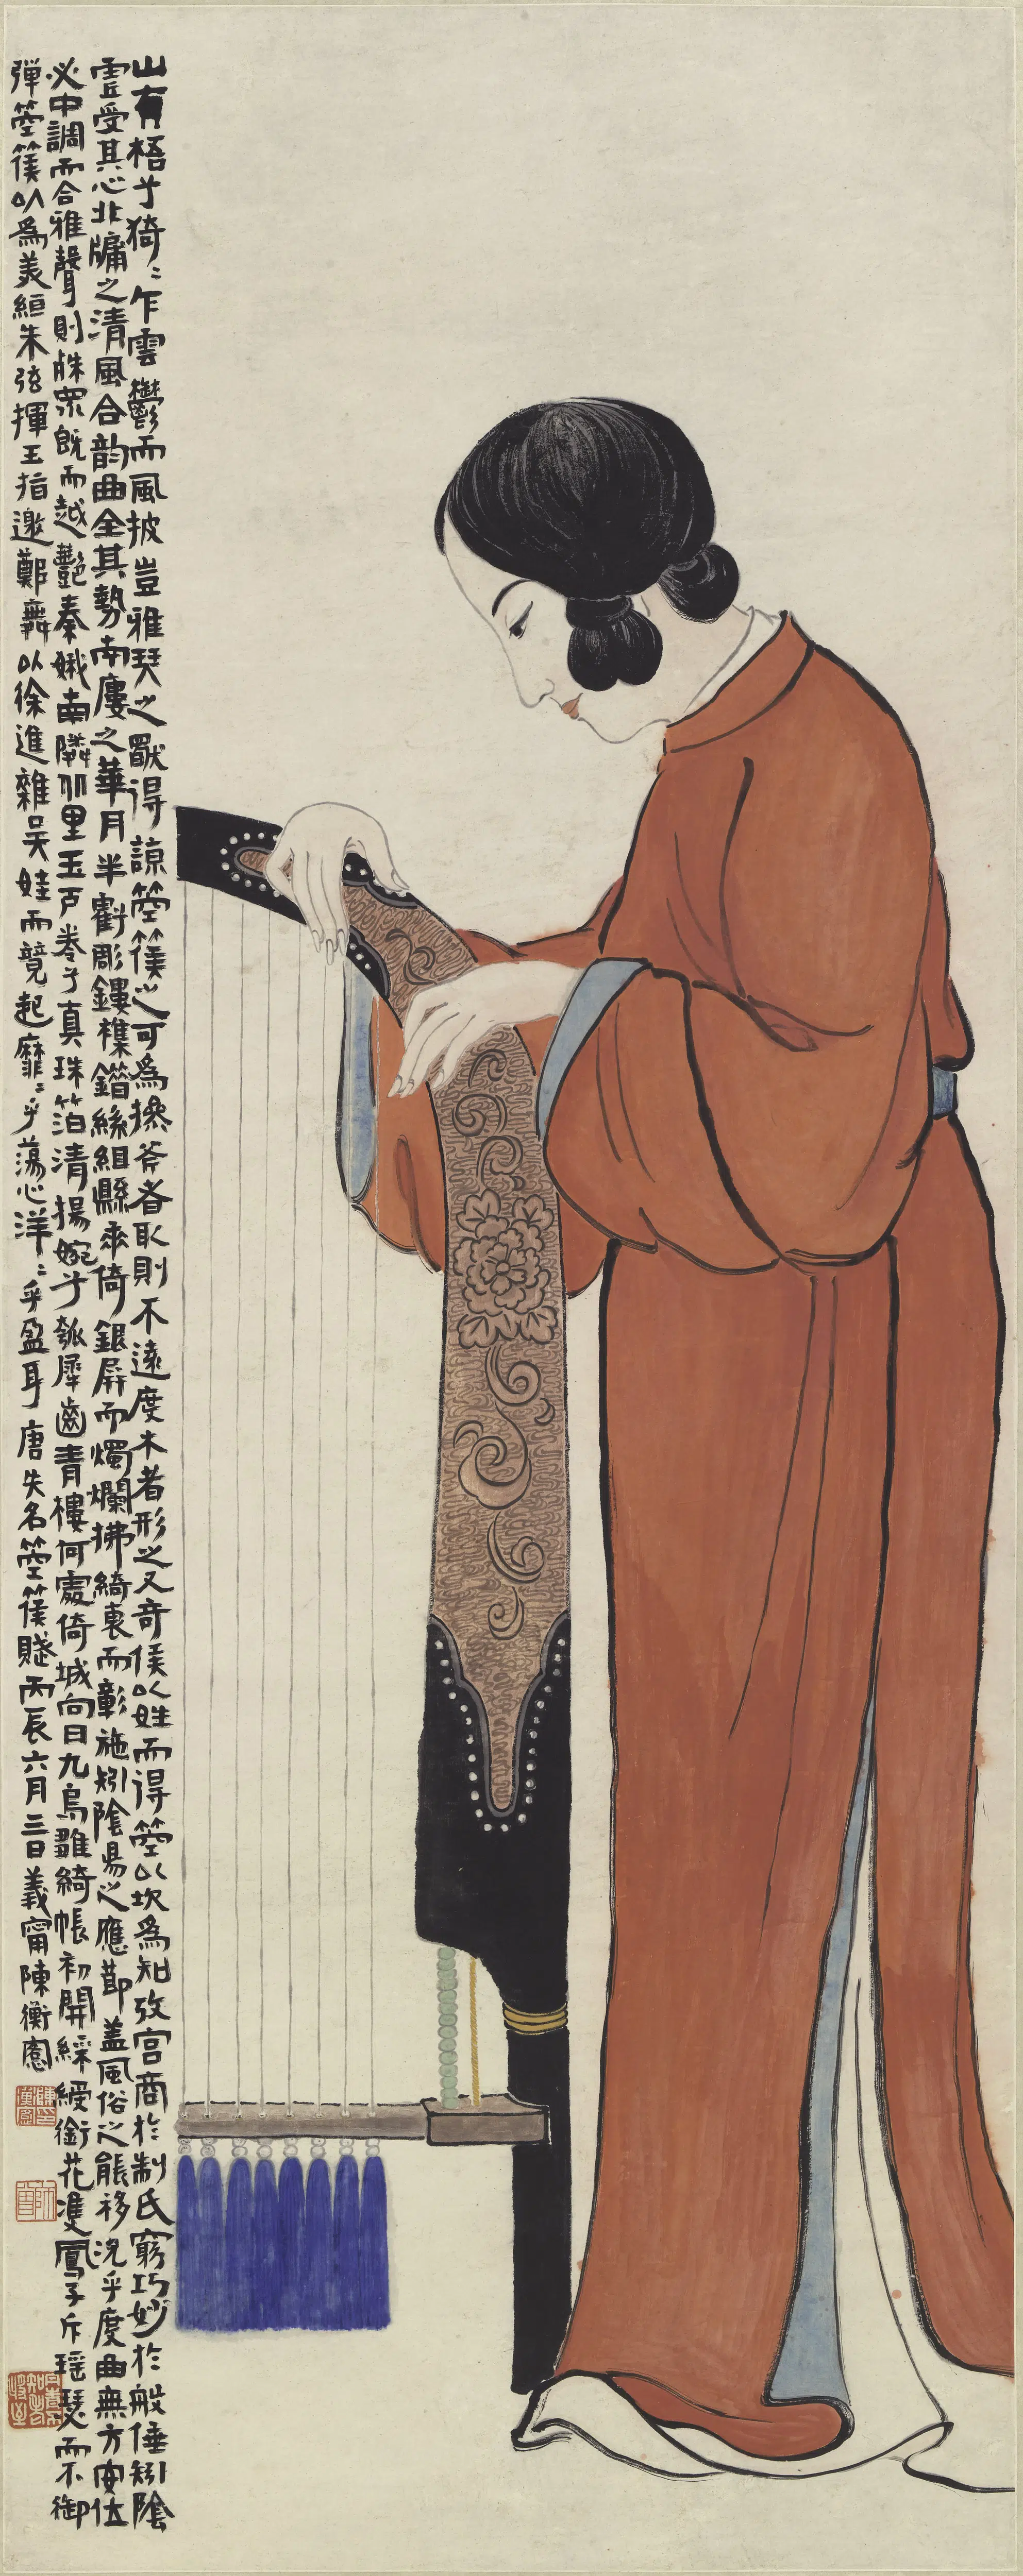 山有梧兮猗〻乍雲鬱而風披豈雅琹之獸得諒箜篌之可為操斧者取則不遠度木者形之又奇侯以姓而得箜以坎為知攷宮商於制氏窮巧妙於般倕矧陰
靈受其心北牖之清風合韵曲全其勢南廔之華月半虧彫鏤櫟錯絲組縣來倚銀屏而燭爛拂綺裏而彰施矧陰昜之應節盖風俗之能移況乎度曲無方安仕
必中調而合雅聲則殊眾既而越艷秦娥南隣北里玉戶卷兮真珠箔清揚婉兮瓠犀齒青樓何處倚城向日九烏雛綺帳初開綵綬銜花雙鳳子斥瑶瑟而不御
彈箜篌以為美絙朱弦揮玉指邀鄭舞以徐進雜吴娃而競起靡〻乎蕩心洋〻乎盈耳 唐失名箜篌賦丙辰六月三日義甯陳衡恪